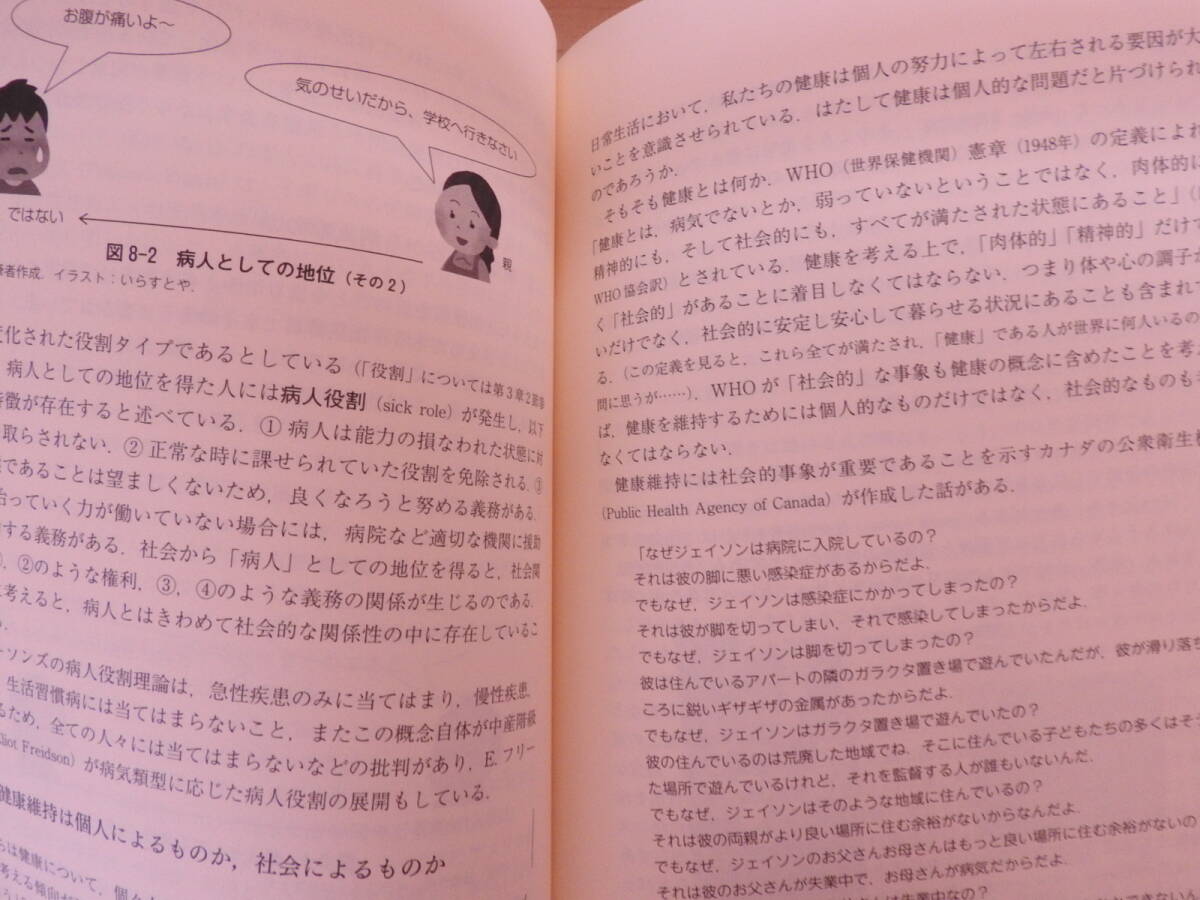 お腹が痛いよ～
気のせいだから、学校へ行きなさい
ではない
親
図8-2 病人としての地位（その2）
者作成．イラスト：いらすとや．
化された役割タイプであるとしている（「役割」については第3章2節参
病人としての地位を得た人には病人役割（sick role）が発生し，以下
徴が存在すると述べている．①病人は能力の損なわれた状態に対
取らされない．②正常な時に課せられていた役割を免除される．③
であることは望ましくないため，良くなろうと努める義務がある．
治っていく力が働いていない場合には，病院など適切な機関に援助
する義務がある．社会から「病人」としての地位を得ると，社会関
，②のような権利，③，④のような義務の関係が生じるのである．
考えると，病人とはきわめて社会的な関係性の中に存在しているこ
ーソンズの病人役割理論は，急性疾患のみに当てはまり，慢性疾患，
生活習慣病には当てはまらないこと，またこの概念自体が中産階級
るため，全ての人々には当てはまらないなどの批判があり，E.フリー
liot Freidson）が病気類型に応じた病人役割の展開もしている．
健康維持は個人によるものか，社会によるものか
ちは健康について，個
考える傾向が
日常生活において，私たちの健康は個人の努力によって左右される要因が大
いことを意識させられている．はたして健康は個人的な問題だと片づけられ
のであろうか．
そもそも健康とは何か．WHO（世界保健機関）憲章（1948年）の定義によれ
「健康とは，病気でないとか，弱っていないということではなく，肉体的に
精神的にも，そして社会的にも，すべてが満たされた状態にあること」（
WHO協会訳）とされている．健康を考える上で，「肉体的」「精神的」だけで
く「社会的」があることに着目しなくてはならない．つまり体や心の調子が
いだけでなく，社会的に安定し安心して暮らせる状況にあることも含まれて
る．（この定義を見ると，これら全てが満たされ，「健康」である人が世界に何人いるの
問に思うが……）．WHOが「社会的」な事象も健康の概念に含めたことを考え
ば，健康を維持するためには個人的なものだけではなく，社会的なものも
なくてはならない．
健康維持には社会的事象が重要であることを示すカナダの公衆衛生機
（Public Health Agency of Canada）が作成した話がある．
「なぜジェイソンは病院に入院しているの？
それは彼の脚に悪い感染症があるからだよ．
でもなぜ，ジェイソンは感染症にかかってしまったの？
それは彼が脚を切ってしまい，それで感染してしまったからだよ．
でもなぜ，ジェイソンは脚を切ってしまったの？
彼は住んでいるアパートの隣のガラクタ置き場で遊んでいたんだが，彼が滑り落ち
ころに鋭いギザギザの金属があったからだよ．
でもなぜ，ジェイソンはガラクタ置き場で遊んでいたの？
彼の住んでいるのは荒廃した地域でね，そこに住んでいる子どもたちの多くはそ
た場所で遊んでいるけれど，それを監督する人が誰もいないんだ．
でもなぜ，ジェイソンはそのような地域に住んでいるの？
それは彼の両親がより良い場所に住む余裕がないからなんだよ．
でもなぜ，ジェイソンのお父さんお母さんはもっと良い場所に住む余裕がないの
それは彼のお父さんが失業中で，お母さんが病気だからだよ．
は失業中なの？